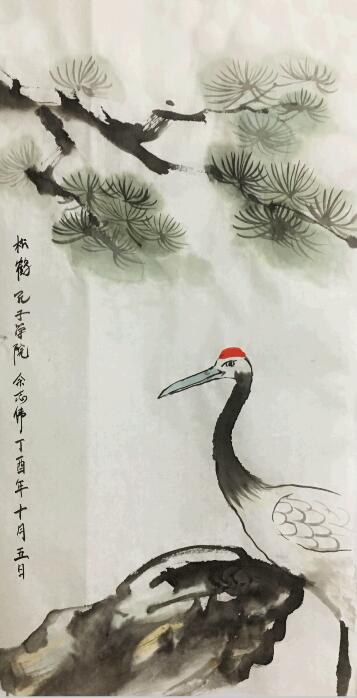 松鹤 孔子学院 余志伟 丁酉年十月五日